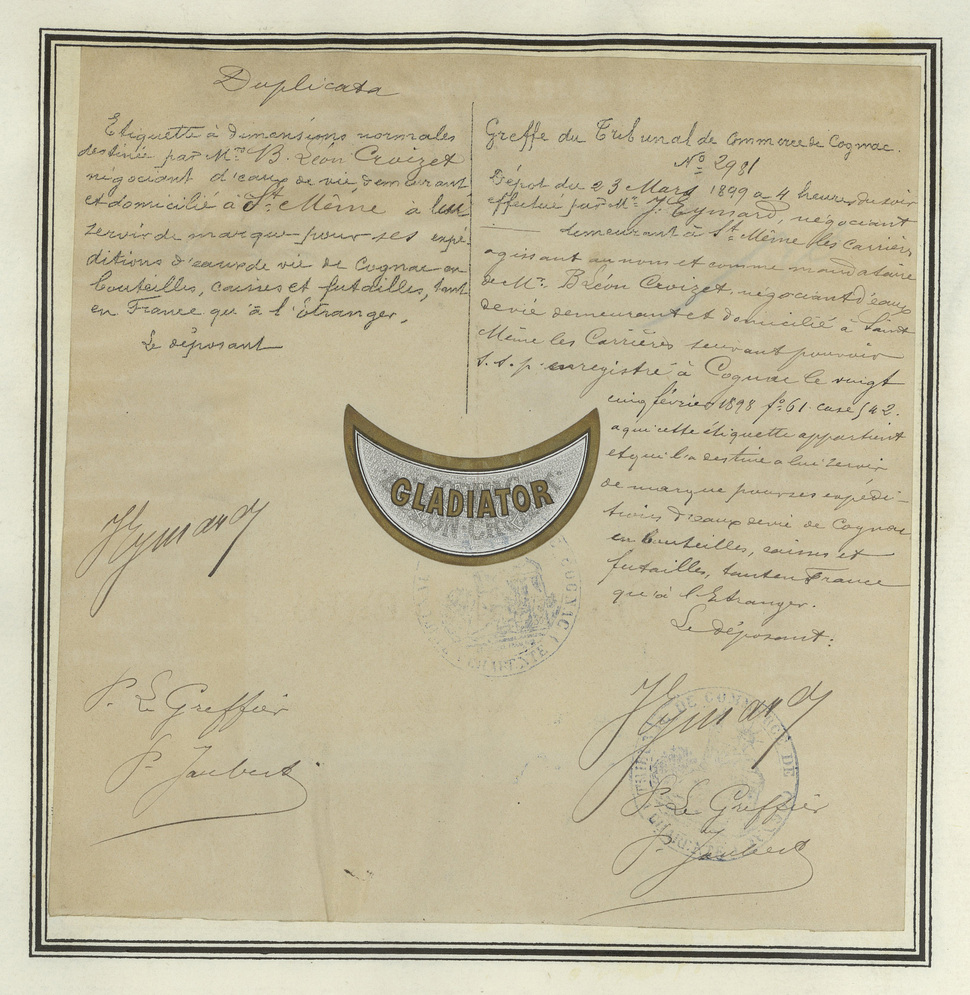 Duplicata
Etiquette à dimensions normales
destinée par Mr. B. Léon Croizet
négociant d'eaux de vie, demeurant
et domicilié à St. Même à lui
servir de marque pour ses expé-
ditions d'eaux de vie de Cognac en
bouteilles, caisses et futailles, tant
en France qu'à l'Etranger.
Le déposant
J Eymard
P. Le Greffier
P. Jaubert
Greffe du Tribunal de Commerce de Cognac.
No 2981
Dépôt du 23 Mars 1899 a 4 heures du soir
effectué par Mr. J. Eymard, négociant
demeurant à St. Même les Carrières
agissant au nom et comme mandataire
de Mr. B Léon Croizet, négociant d'eaux
de vie demeurant et domicilié à Saint
Même les Carrières suivant pouvoir
s.s.p. enregistré à Cognac le vingt
cinq février 1898 fo. 61 case
a qui cette étiquette appartient
et qui l'a destiné a lui servir
de marque pour ses expédi-
tions d'eaux de vie de Cognac
en bouteilles, caisses et
futailles, tant en France
qu'à l'Etranger.
Le déposant:
J Eymard
P. Le Greffier
P. Jaubert
GLADIATOR
COGNAC
CHARENTE
TRIBUNAL DE COMMERCE DE COGNAC
CHARENTE